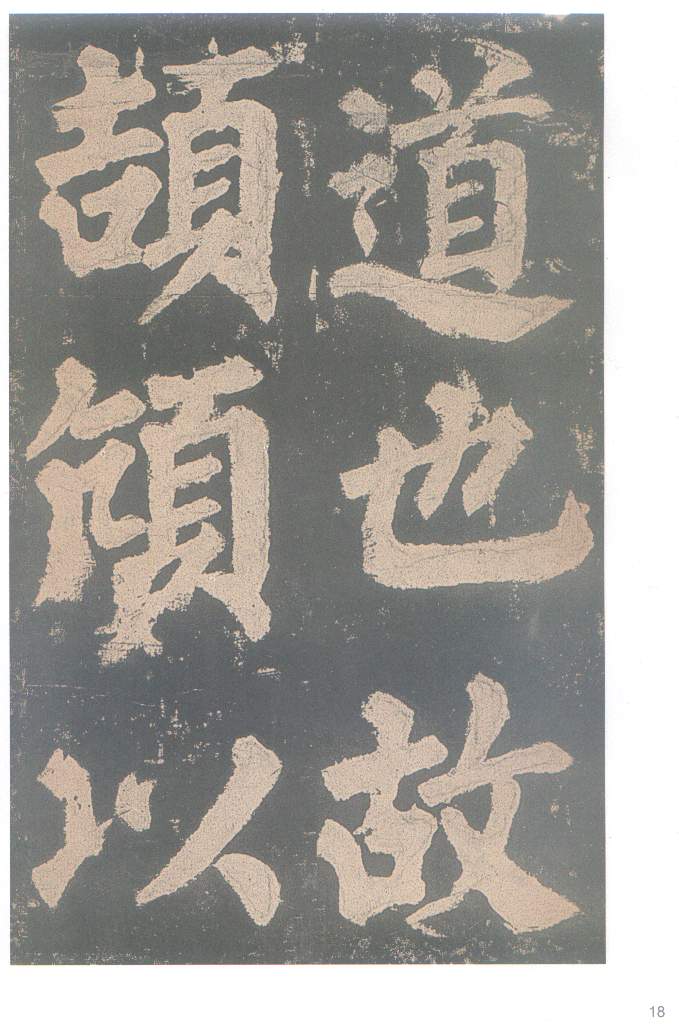 道也故
頡頏以
18